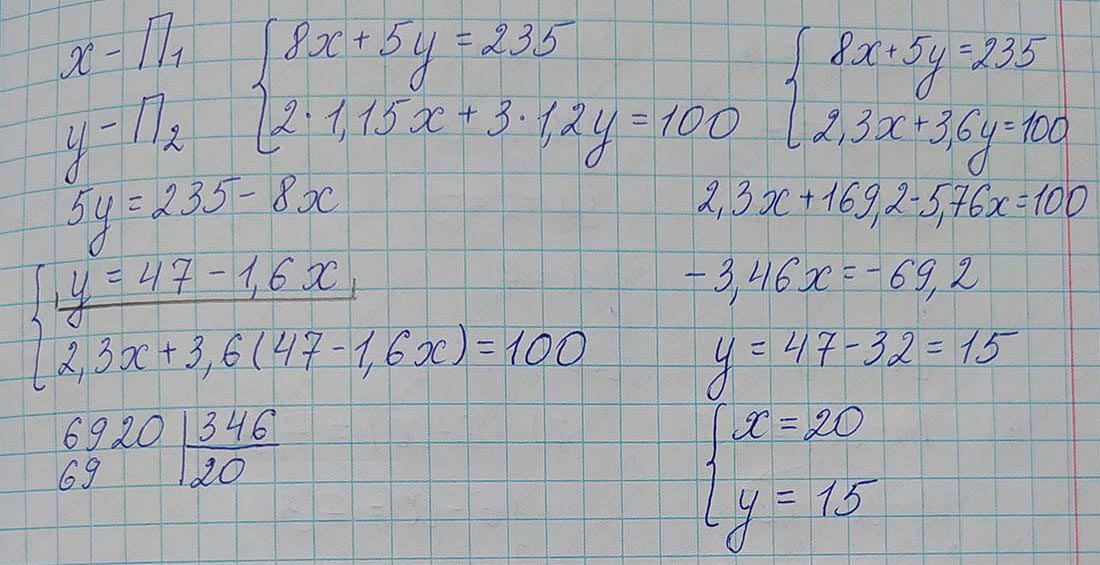 x - П₁
y - П₂
{8x + 5y = 235
2 · 1,15x + 3 · 1,2y = 100
{8x + 5y = 235
2,3x + 3,6y = 100
5y = 235 - 8x
{y = 47 - 1,6x
2,3x + 3,6(47 - 1,6x) = 100
6920 | 346
69 | 20
2,3x + 169,2 - 5,76x = 100
-3,46x = -69,2
y = 47 - 32 = 15
{x = 20
y = 15